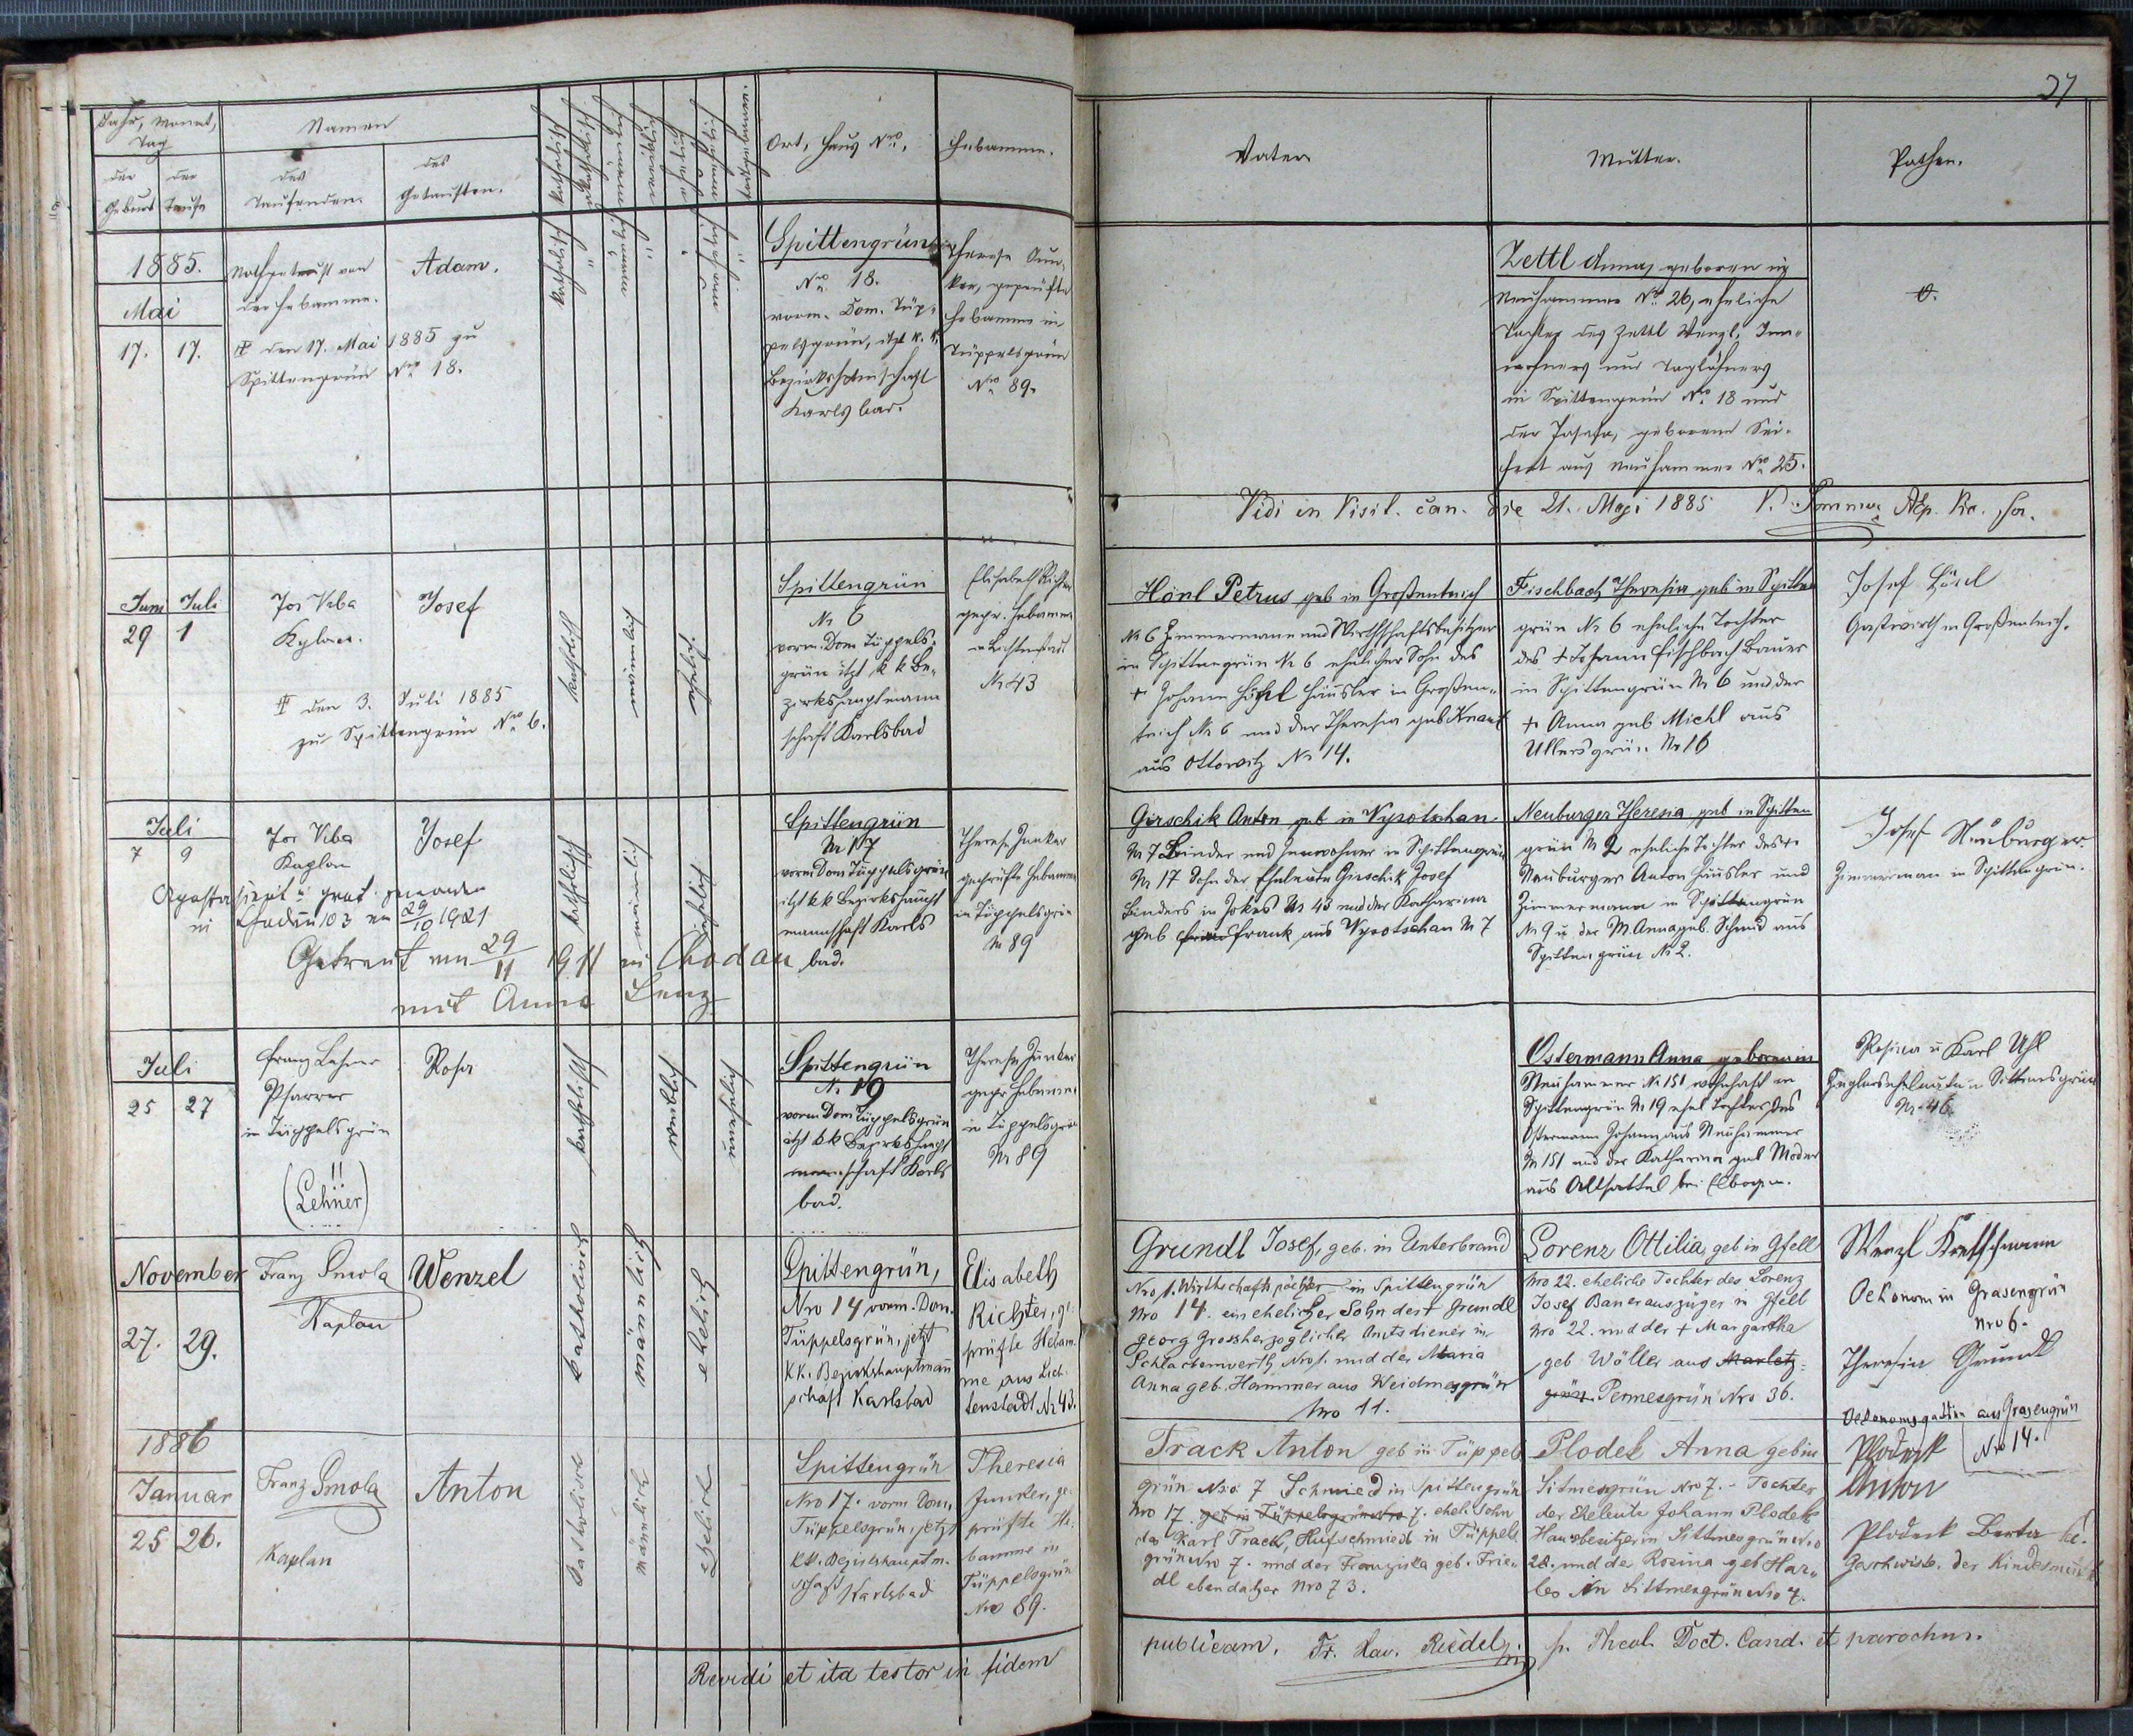 37
Jahr, Monat,
Tag
der Geburt
der Taufe
Namen
des Taufenden.
des Getauften.
katholisch
männlich
weiblich
ehelich
unehelich
todtgeboren.
Ort, Haus Nro.
Hebamme.
Vater
Mutter.
Pathen.
1885.
Mai
17. 17.
Nothgetauft von
der Hebamme.
den 17. Mai 1885 zu
Spittengrün Nro 18.
Adam.
katholisch
Spittengrün
Nro 18.
vorm. Dom. Tüp-
pelsgrün, itzt k. k.
Bezirkshptmschaft
Karlsbad.
Therese Jun-
ker, geprüfte
Hebamme in
Tüppelsgrün
Nro 89.
Zettl Anna, geboren in
Neuhammer Nro 26, eheliche
Tochter des Zettl Wenzl, Inn-
wohners und Taglöhners
in Spittengrün Nro 18 und
der Josefa, geborene Sei-
fert aus Neuhammer Nro 25.
0.
Vidi in Visit. can. die 21. Maji 1885
Juni Juli
29 1
Jos Viba
Kaplan.
den 3. Juli 1885
zu Spittengrün Nro 6.
Josef
katholisch
männlich
ehelich
Spittengrün
Nr 6
vorm. Dom Tüppels-
grün itzt k k Be-
zirkshauptmann
schaft Karlsbad
Elisabeth Richter
gepr. Hebamme
Lichtenstadt
Nr 43
Hönl Petrus geb in Großenteich
Nr 6 Zimmermann und Wirthschaftsbesitzer
in Spittengrün Nr 6 ehelicher Sohn des
+ Johann Hönl Häusler in Großen-
teich Nr 6 und der Theresia geb Knaut
aus Ottowitz Nr 14.
Fischbach Theresia geb in Spitten
grün Nr 6 eheliche Tochter
des + Johann Fischbach Bauer
in Spittengrün Nr 6 und der
+ Anna geb Michl aus
Ullersgrün Nr 16
Josef
Gastwirth in Großenteich.
Juli
7 9
Jos Viba
Kaplan
Josef
in Chodau 103 am 29/10 1921
Getraut am 29/11 1911 in Chodau
mit Anna Lenz
katholisch
männlich
ehelich
Spittengrün
Nr 17
vorm Dom Tüppelsgrün
itzt k k Bezirkshaupt
mannschaft Karls
bad.
Therese Junker
geprüfte Hebamme
in Tüppelsgrün
Nr 89
Girschik Anton geb in Wysotschan
Nr 7 Binder und Innwohner in Spittengrün
Nr 17 Sohn der Eheleute Girschik Josef
Binders in Jokes Nr 43 und der Katharina
geb Frank aus Wysotschan Nr 7
Neuburger Theresia geb in Spitten
grün Nr 2 eheliche Tochter des +
Neuburger Anton Häusler und
Zimmermann in Spittengrün
Nr 9 u der M. Anna geb. Schmid aus
Spittengrün Nr 2.
Josef Neuburger
Zimmerman in Spittengrün.
Juli
25 27
Franz Lehner
Pfarrer
in Tüppelsgrün
!!
(Lehner)
Rosa
katholisch
weiblich
unehelich
Spittengrün
Nr 19
vorm Dom Tüppelsgrün
itzt k k Bezirkshaupt
mannschaft Karls
bad.
Therese Junker
gepr Hebamme
in Tüppelsgrün
Nr 89
Ostermann Anna geboren in
Neuhammer Nr 151 wohnhaft in
Spittengrün Nr 19 ehel Tochter des
Ostermann Johann aus Neuhammer
Nr 151 und der Katharina geb Moder
aus Altsattel bei Elbogen.
Rosina u Karl Uhl
Nr 46
November
27. 29.
Franz Smola
Kaplan
Wenzel
katholisch
männlich
ehelich
Spittengrün,
Nro 14 vorm. Dom.
Tüppelsgrün, jetzt
k.k. Bezirkshauptmann
schaft Karlsbad
Elisabeth
Richter, ge-
prüfte Hebam-
me aus Lich-
tenstadt Nr 43.
Grundl Josef, geb. in Unterbrand
Nro 1. Wirthschaftspächter in Spittengrün
Nro 14. ein ehelicher Sohn des + Grundl
Georg Grossherzoglicher Amtsdiener in
Schlackenwerth Nro 1. und der Maria
Anna geb. Hammer aus Weidmesgrün
Nro 11.
Lorenz Ottilia, geb in Gfell
Nro 22. eheliche Tochter des Lorenz
Josef Bauerauszüger in Gfell
Nro 22. und der + Margartha
geb. Wöller aus Marletz-
grün Permesgrün Nro 36.
Wenzl Kretschmann
Oekonom in Grasengrün
Nro 6.
Theresia Grundl
Oekonomsgattin aus Grasengrün
Nro 14.
1886
Januar
25 26.
Franz Smola
Kaplan
Anton
katholisch
männlich
ehelich
Spittengrün
Nro 17. vorm Dom.
Tüppelsgrün, jetzt
k.k. Bezirkshauptm.
schaft Karlsbad
Theresia
Junker, ge-
prüfte He-
bamme in
Tüppelsgrün
Nro 89.
Track Anton geb in Tüppels
grün Nro 7 Schmied in Spittengrün
Nro 17. geb in Tüppelsgrün Nro 7. ehel. Sohn
des Karl Track, Hufschmied in Tüppels
grün Nro 7. und der Franziska geb. Frie-
dl ebendaher Nro 73.
Plodek Anna geb in
Sitmesgrün Nro 7. Tochter
der Eheleute Johann Plodek
Hausbesitzer in Sittmesgrün Nro
28. und der Rosina geb Har-
les in Sittmesgrün Nro 7.
Plodek
Anton
Plodeck Berta
Geschwister der Kindesmutter
Revidi et ita testor in fidem
publicam. Fr. Xav. Riedel, Theol. Doct. Cand. et parochus.